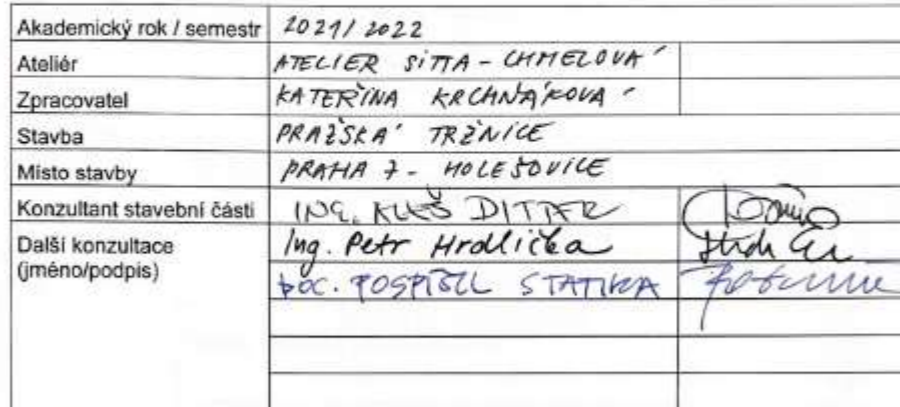 Akademický rok / semestr 2021/2022
Ateliér ATELIER SITTA - CHMELOVÁ
Zpracovatel KATEŘINA KRCHŇÁKOVÁ
Stavba PRAŽSKÁ TRŽNICE
Místo stavby PRAHA 7 - HOLEŠOVICE
Konzultant stavební části ING. ALEŠ DITTER
Další konzultace Ing. Petr Hrdlička
(jméno/podpis) DOC. POSPÍŠIL STATIKA